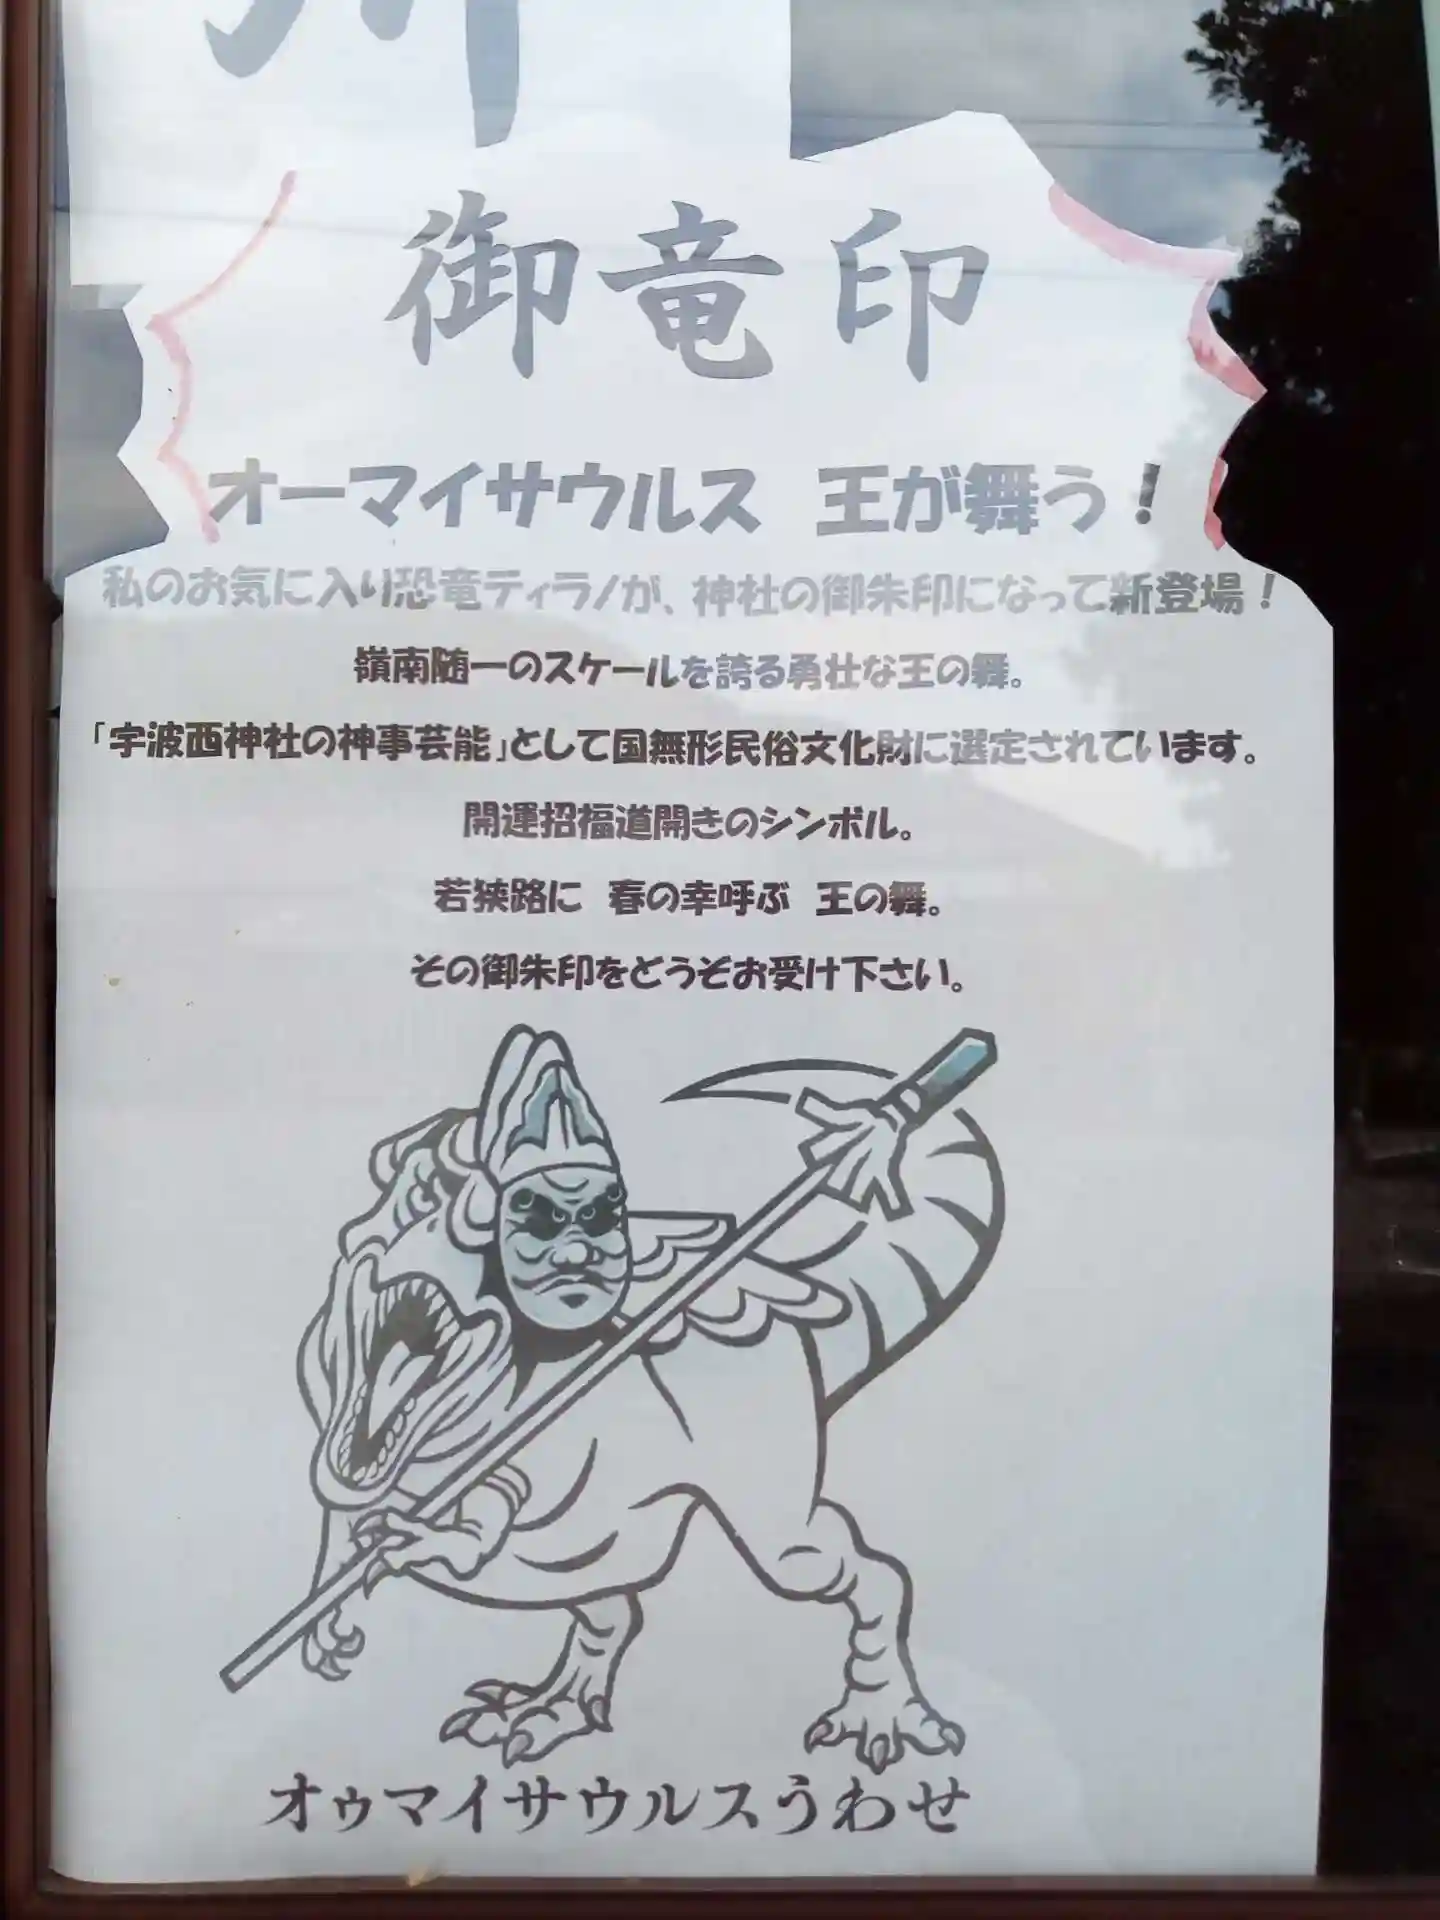 御竜印
オーマイサウルス　王が舞う！
私のお気に入り恐竜ティラノが、神社の御朱印になって新登場！
嶺南随一のスケールを誇る勇壮な王の舞。
「宇波西神社の神事芸能」として国無形民俗文化財に選定されています。
開運招福道開きのシンボル。
若狭路に　春の幸呼ぶ　王の舞。
その御朱印をどうぞお受け下さい。
オゥマイサウルスうわせ